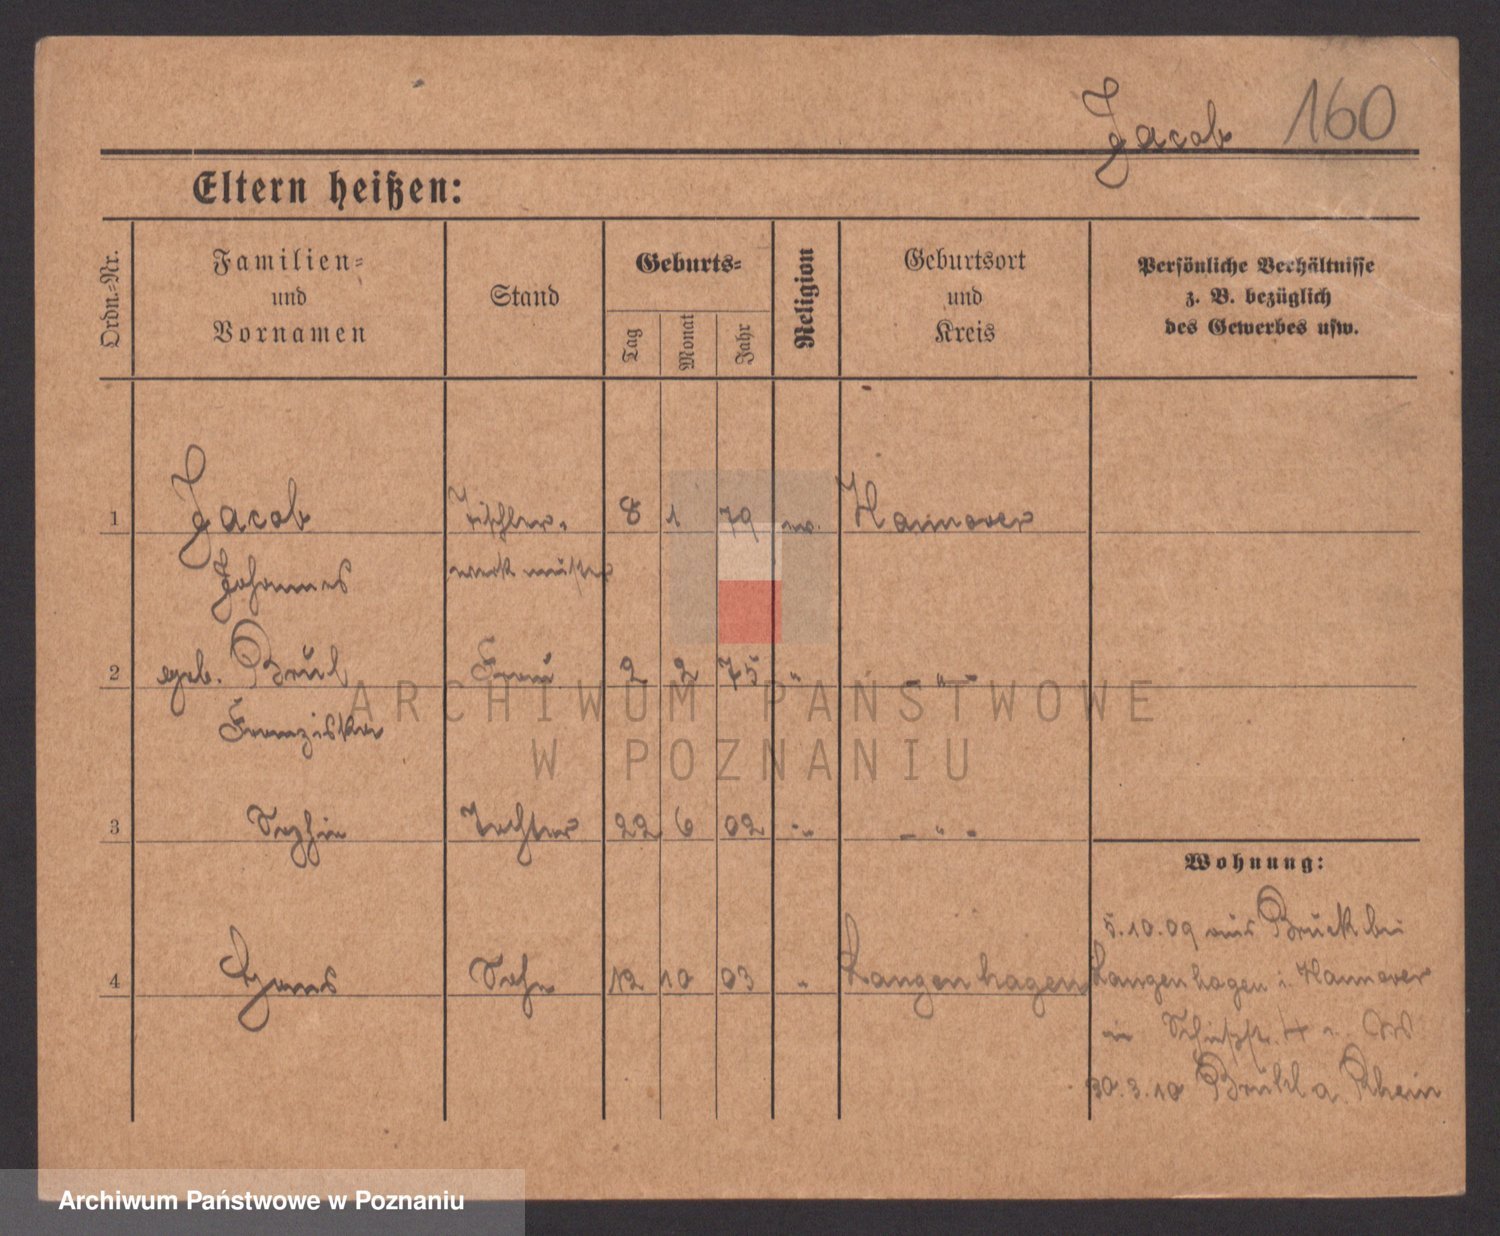 Jacob 160
Eltern heißen:
Ordn.-Nr.
Familien-
und
Vornamen
Stand
Geburts-
Tag
Monat
Jahr
Religion
Geburtsort
und
Kreis
Persönliche Verhältnisse
z. B. bezüglich
des Gewerbes usw.
1 Jacob Tischler- 8 1 79 ev. Hannover
Johannes
2 geb. Brül Frau 2 2 75 " - " -
Franziska
3 Sophie Tochter 22 6 02 - " - " -
Wohnung:
5.10.09 aus Brück bei
4 Hans Sohn 12 10 03 " Langenhagen Langenhagen i. Hannover
in
30.3.10 Brühl a. Rhein
ARCHIWUM PAŃSTWOWE
W POZNANIU
Archiwum Państwowe w Poznaniu